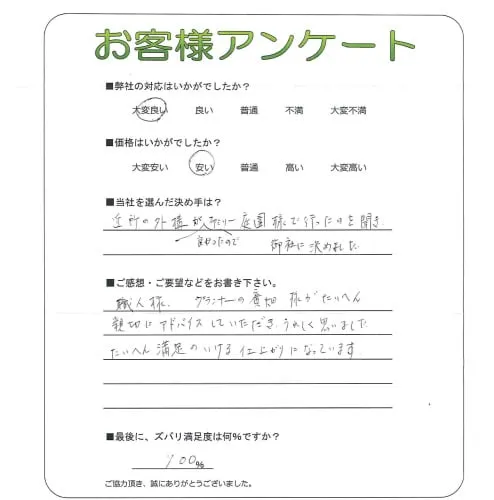 お客様アンケート
■弊社の対応はいかがでしたか？
大変良い 良い 普通 不満 大変不満
■価格はいかがでしたか？
大変安い 安い 普通 高い 大変高い
■当社を選んだ決め手は？
近所の外構が 庭園様で行ったのを聞き
良かったので 御社に決めました
■ご感想・ご要望などをお書き下さい。
職人様、プランナーの 様がたいへん
親切にアドバイスしていただき、うれしく思いました
たいへん満足のいける仕上がりになっています。
■最後に、ズバリ満足度は何%ですか？
100%
ご協力頂き、誠にありがとうございました。